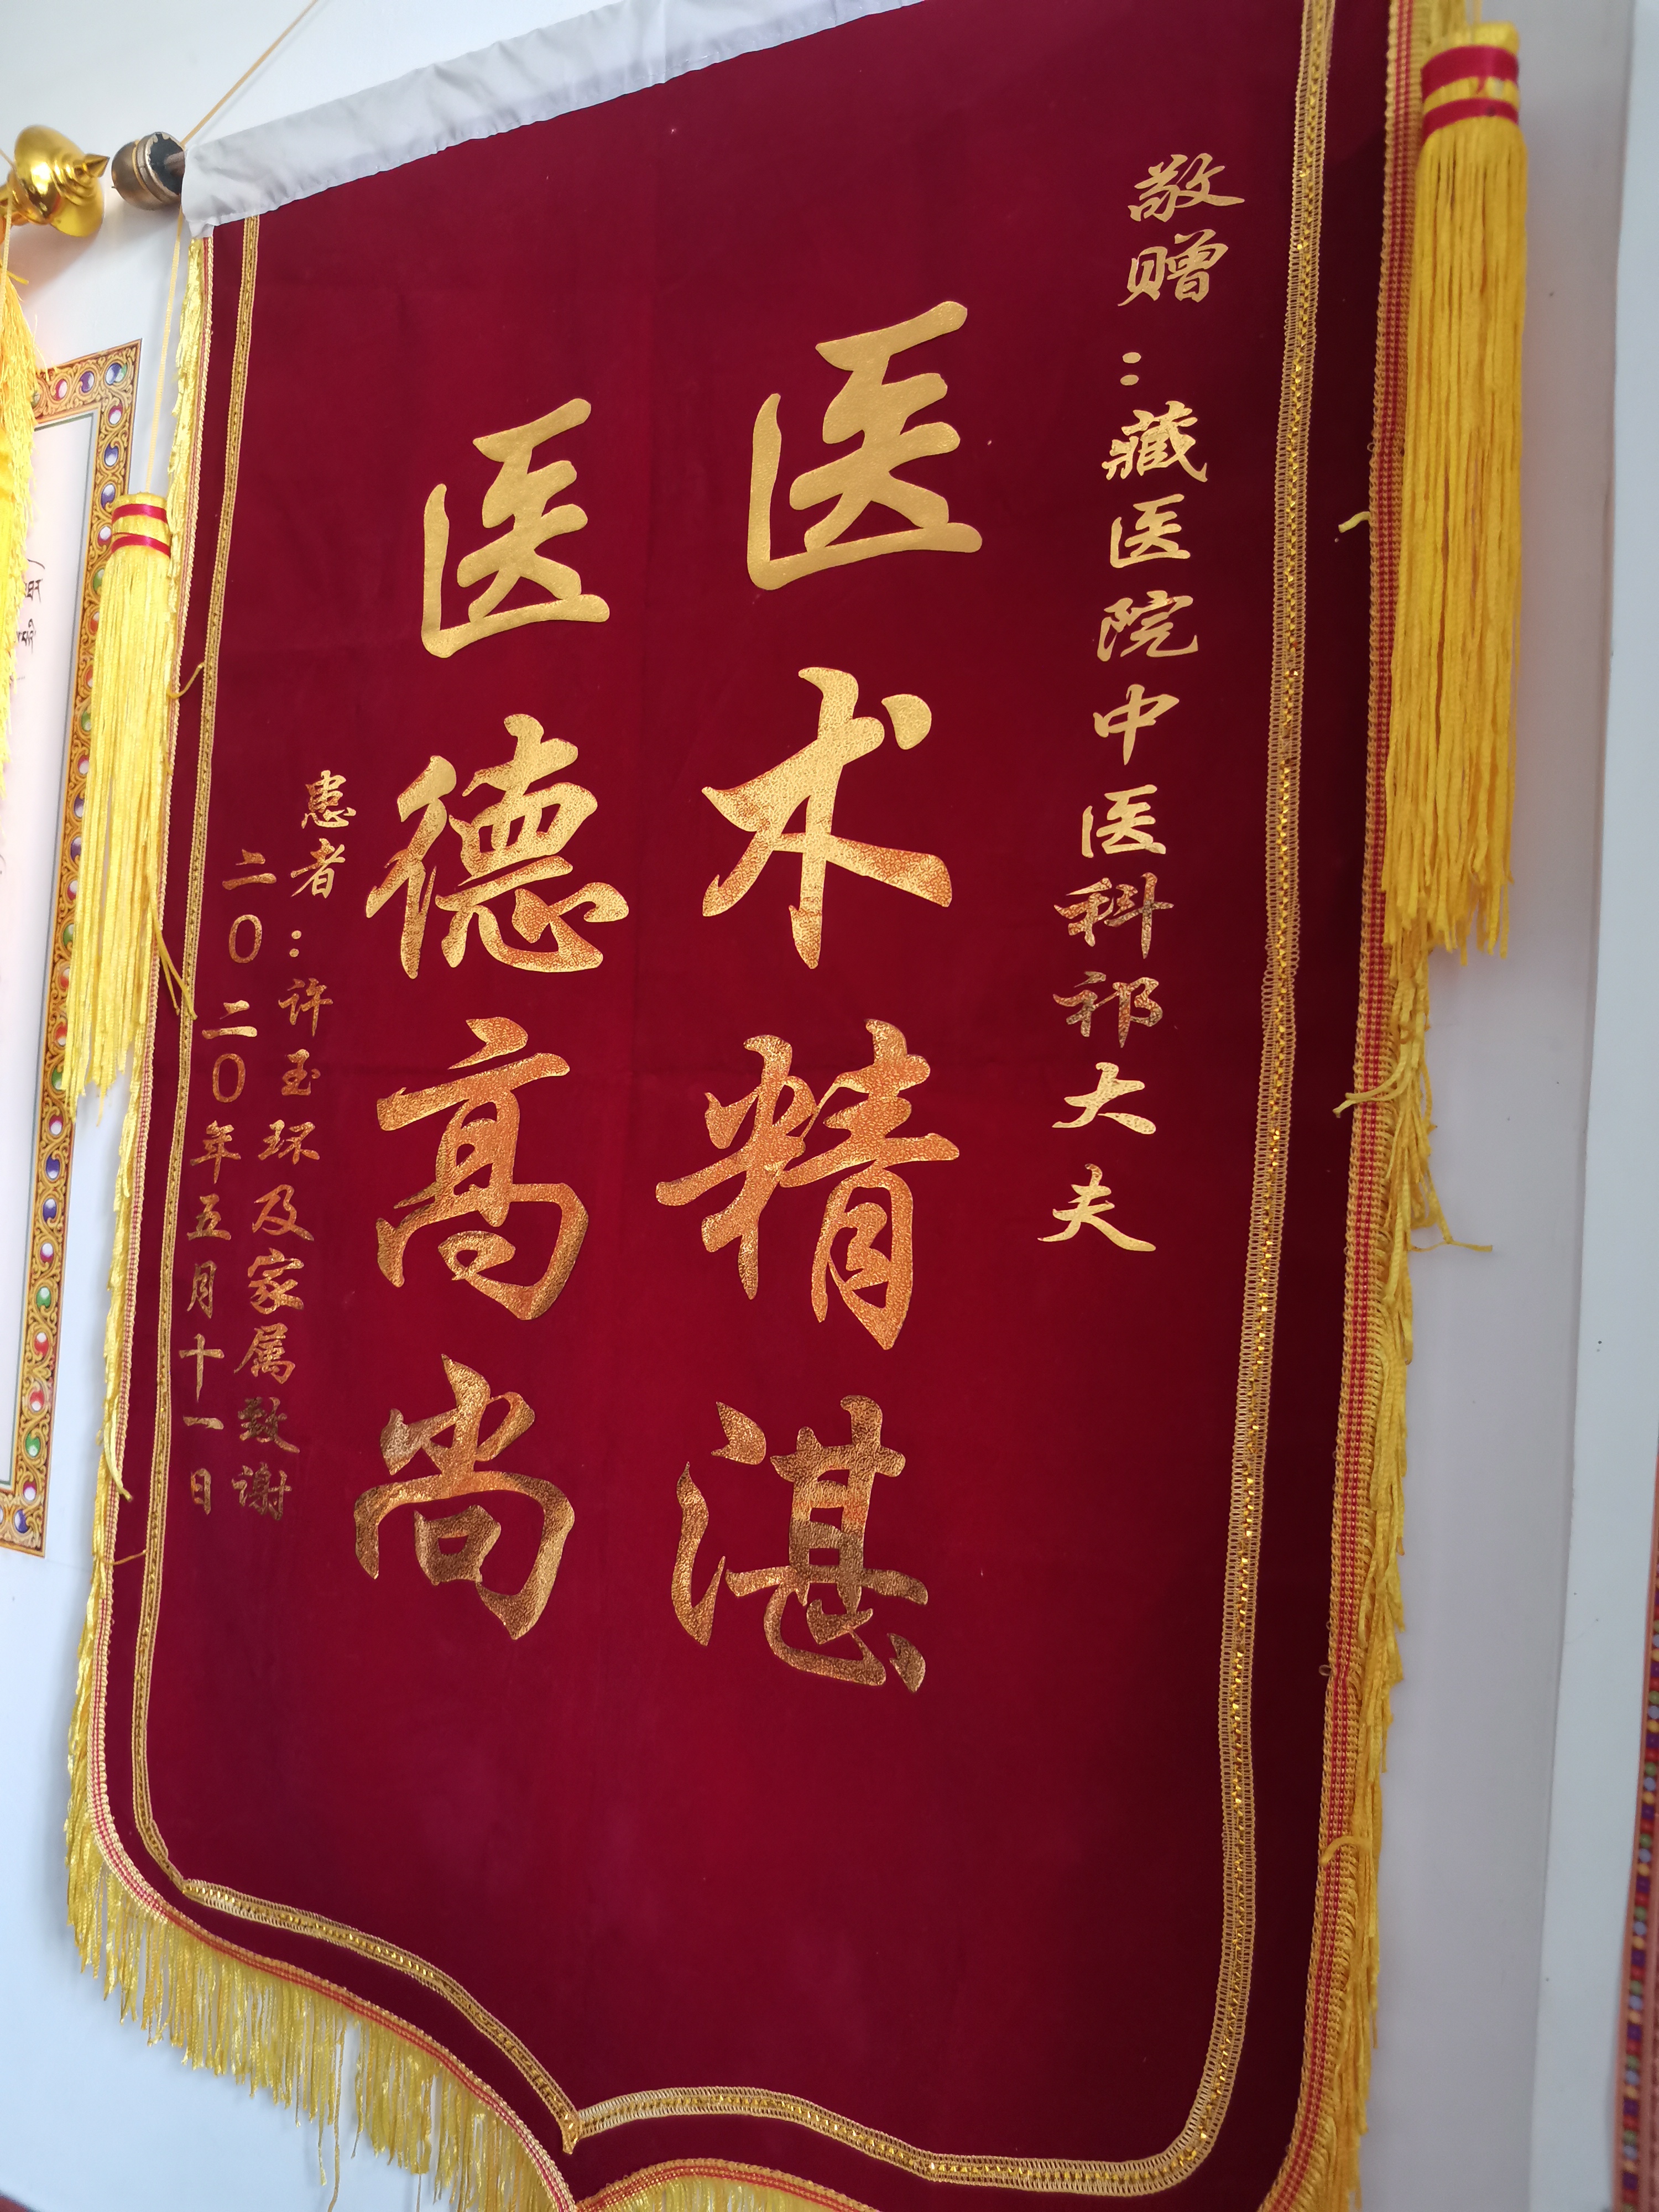 敬赠：藏医院中医科祁大夫
医术精湛
医德高尚
患者：许玉环及家属致谢
二〇二〇年五月十一日